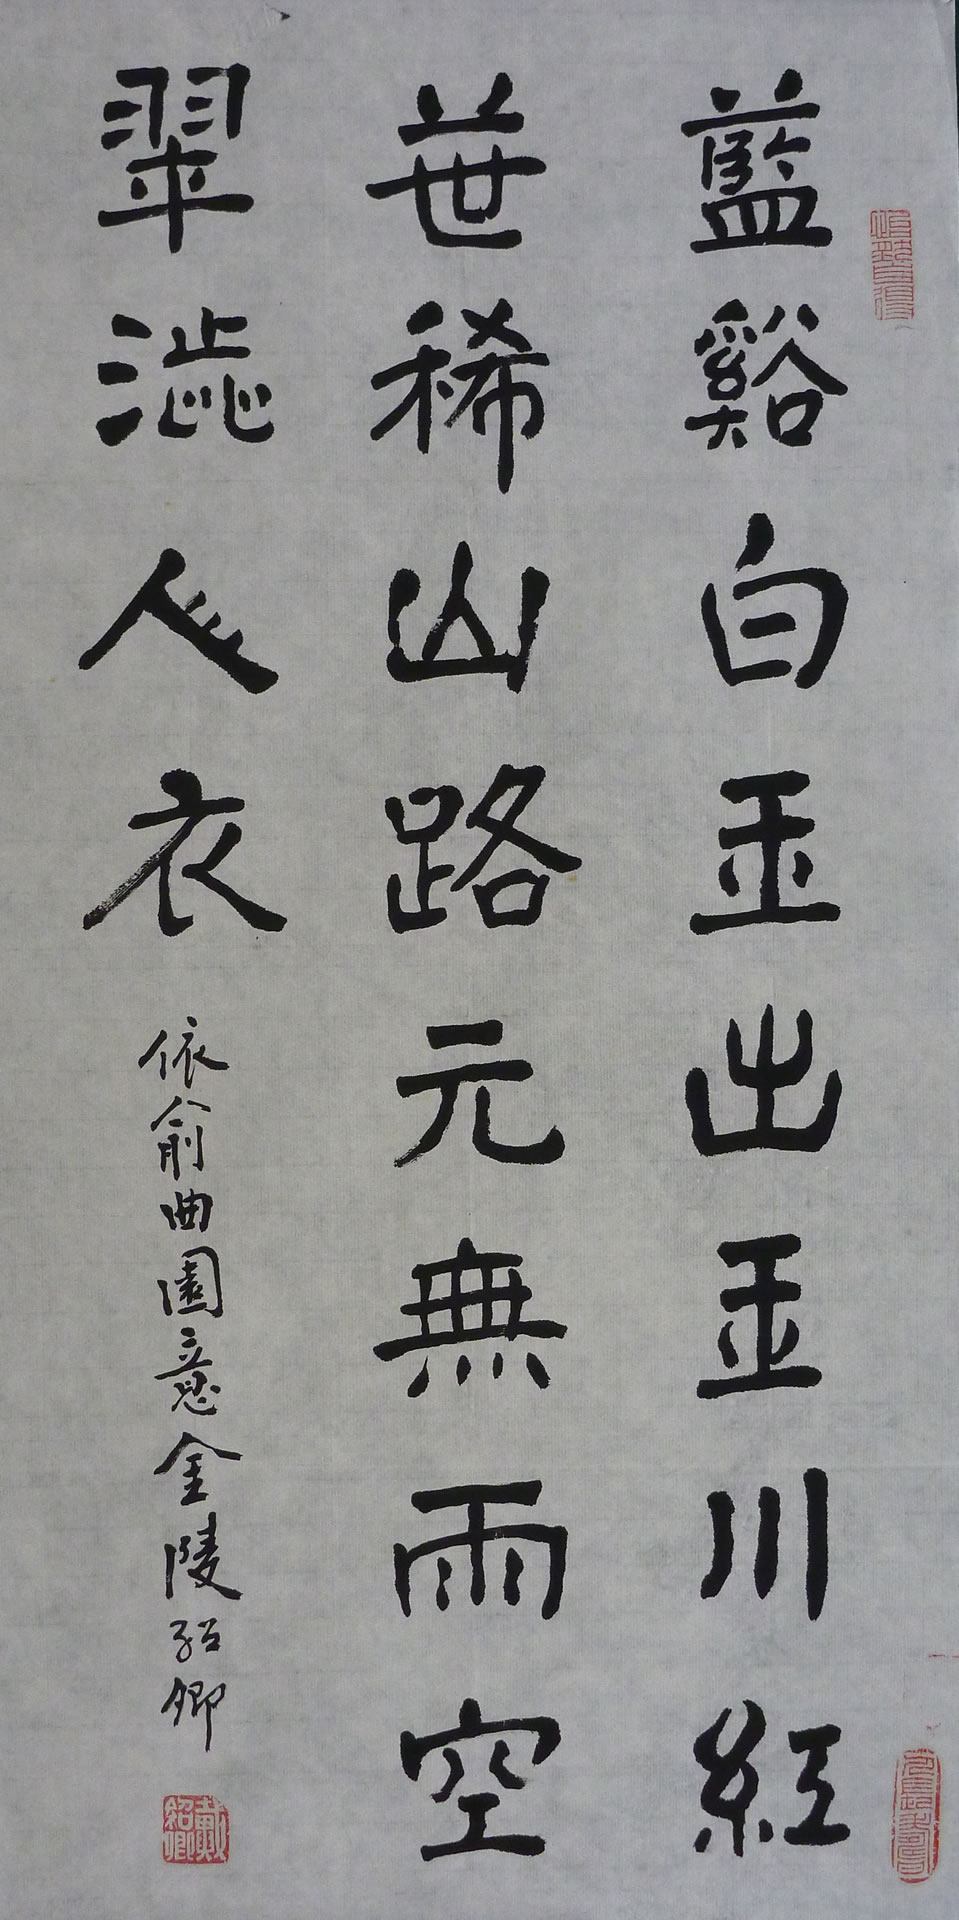 藍谿白玉出玉川紅
葉稀山路元無雨空
翠澁人衣
依俞曲園意金陵紹卿
戴紹卿